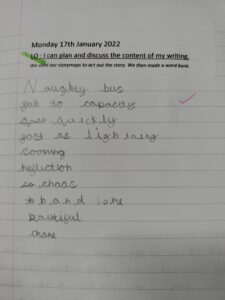 Monday 17th January 2022
LO: I can plan and discuss the content of my writing.
We used our storymaps to act out the story. We then made a word bank.
Naughty bus
full to capacity
quickly
fast as lightning
zooming
reflection
chaos
chase
beautiful